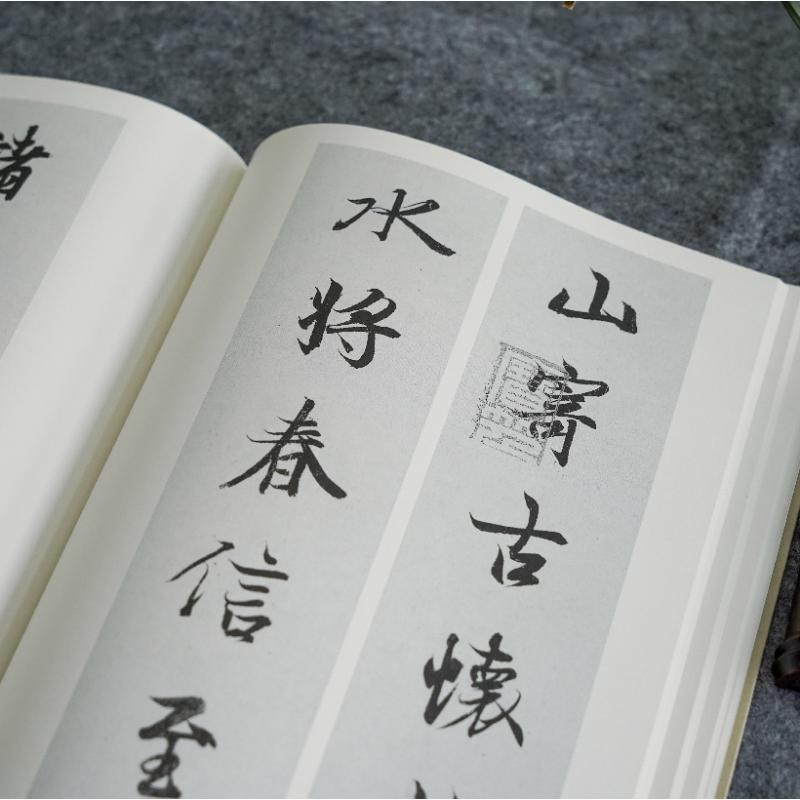 山寄古懷
水將春信至